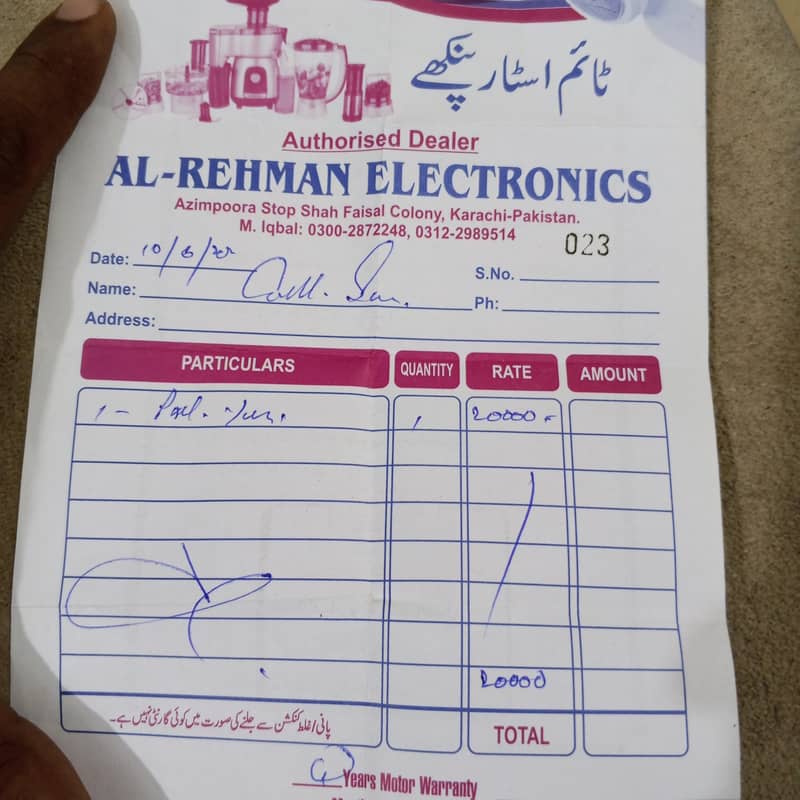 ٹائم اسٹار پنکھے
Authorised Dealer
AL-REHMAN ELECTRONICS
Azimpoora Stop Shah Faisal Colony, Karachi-Pakistan.
M. Iqbal: 0300-2872248, 0312-2989514
023
Date: 10/6/
S.No.
Name:
Ph:
Address:
PARTICULARS QUANTITY RATE AMOUNT
1 - 1 20000
20000
پانی/غلط کنکشن سے جلنے کی صورت میں کوئی گارنٹی نہیں ہے۔
TOTAL
Years Motor Warranty